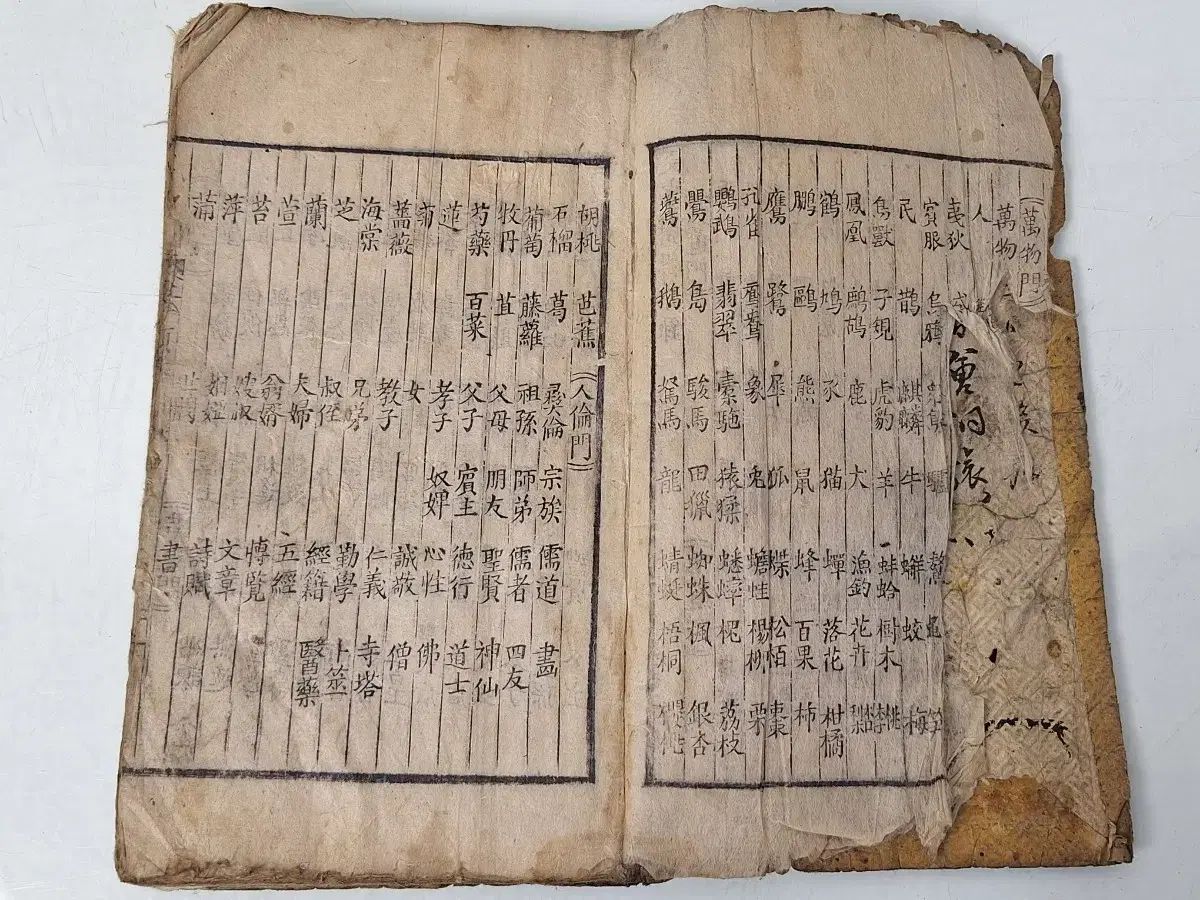 《萬物門》
萬物
人
夷狄
賓服 烏鴉 驢 龜
民 鵲 麒麟 牛 蛟 梅
鳥獸 子規 虎豹 羊 蚌蛤 樹木 桃李
鳳凰 鷓鴣 鹿 犬 漁釣 花卉
鶴 鳩 豕 猫 蟬 落花 柑橘
鵬 鷗 熊 鼠 蜂 百果 柿
鷹 鷺 犀 狐 蝶 松栢 棗
孔雀 鴛鴦 象 兎 蟾蛙 楊柳 栗
鸚鵡 翡翠 橐駞 猿猱 蟋蟀 槐 荔枝
鸎 鳧 駿馬 田獵 蜘蛛 楓 銀杏
鷰 鵝 駑馬 龍 蜻蜓 梧桐
胡桃 芭蕉 《人倫門》
石榴 葛 彛倫 宗族 儒道 畫
葡萄 藤蘿 祖孫 師弟 儒者 四友
牧丹 苴 父母 朋友 聖賢 神仙
芍藥 百菜 父子 賓主 德行 道士
蓮 孝子 奴婢 心性 佛
菊 女 誠敬 僧
薔薇 教子 仁義 寺塔
海棠 兄弟 勤學 卜筮
芝 叔侄 經籍 醫藥
蘭 夫婦 五經
萱 翁婿 博覽
苔 嫂叔 文章
萍 詩賦
蒲 書